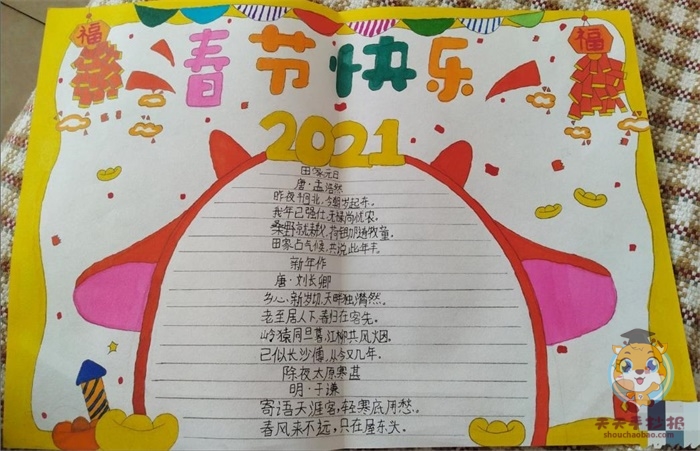 福
福
春节快乐
2021
田家元日
唐·孟浩然
昨夜斗回北，今朝岁起东。
我年已强仕，无禄尚忧农。
桑野就耕父，荷锄随牧童。
田家占气候，共说此年丰。
新年作
唐·刘长卿
乡心新岁切，天畔独潸然。
老至居人下，春归在客先。
岭猿同旦暮，江柳共风烟。
已似长沙傅，从今又几年。
除夜太原寒甚
明·于谦
寄语天涯客，轻寒底用愁。
春风来不远，只在屋东头。
天天手抄报
shouchaobao.com